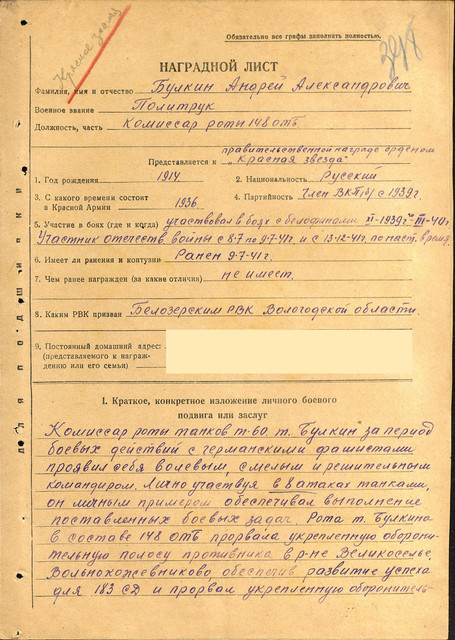 Обязательно все графы заполнять полностью.
НАГРАДНОЙ ЛИСТ
Фамилия, имя и отчество Булкин Андрей Александрович
Военное звание Политрук
Должность, часть комиссар роты 148 отб.
правительственной награде орденом
Представляется к „Красная звезда"
1. Год рождения 1914 2. Национальность Русский
3. С какого времени состоит в Красной Армии 1936 4. Партийность Член ВКП(б) с 1939г.
5. Участие в боях (где и когда) участвовал в боях с белофинами XI-1939г по III-40г
Участник отечеств. войны с 8-7 по 9-7-41г. и с 13-12-41г. по наст. время
6. Имеет ли ранения и контузии Ранен 9-7-41г.
7. Чем ранее награжден (за какие отличия) не имеет.
8. Каким РВК призван Белозерским РВК Вологодской области.
9. Постоянный домашний адрес:
(представляемого к награж-
дению или его семьи)
I. Краткое, конкретное изложение личного боевого
подвига или заслуг
Комиссар роты танков т-60, т. Булкин за период
боевых действий с германскими фашистами
проявил себя волевым, смелым и решительным
командиром. Лично участвуя в 8 атаках танками,
он личным примером обеспечивал выполнение
поставленных боевых задач. Рота т. Булкина
в составе 148 отб прорвала укрепленную оборони-
тельную полосу противника в р-не Великоселье,
Вольнокожевниково обеспечив развитие успеха
для 183 СД и прорвал укрепленную оборонитель-
для подшивки